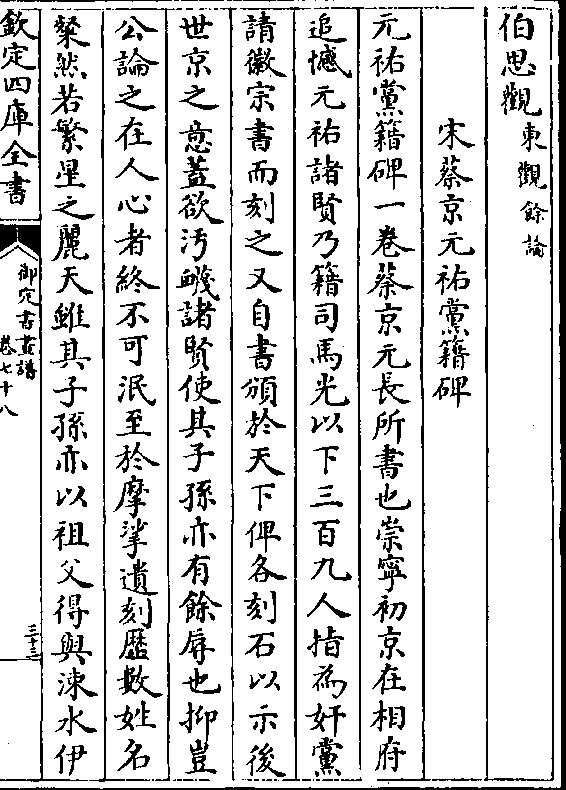 伯思觀東觀餘論
宋蔡京元祐黨籍碑
元祐黨籍碑一卷蔡京元長所書也崇寧初京在相府
追憾元祐諸賢乃籍司馬光以下三百九人指為奸黨
請徽宗書而刻之又自書頒於天下俾各刻石以示後
世京之意蓋欲汚衊諸賢使其子孫亦有餘辱也抑豈
公論之在人心者終不可泯至於摩挲遺刻歴數姓名
粲然若繁星之麗天雖其子孫亦以祖父得與涑水伊
欽定四庫全書
御定書畫譜
卷七十八
三十三